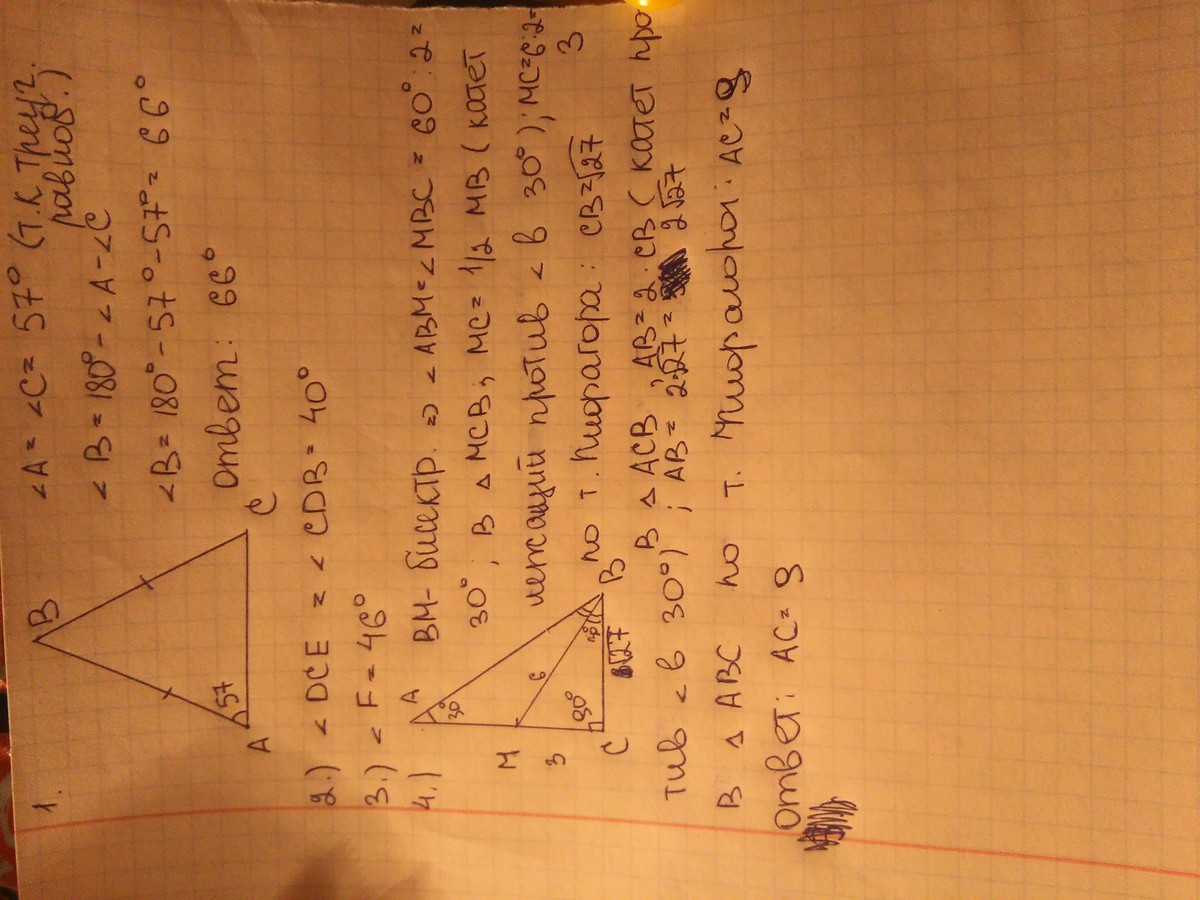 1.
B
57
A
C
∠A = ∠C = 57° (т.к треуг.
равноб.)
∠B = 180° - ∠A - ∠C
∠B = 180° - 57° - 57° = 66°
Ответ: 66°
2.) ∠DCE = ∠CDB = 40°
3.) ∠F = 46°
4.)
A
30°
6
M
3
90°
C
B
√27
BM- бисектр. => ∠ABM = ∠MBC = 60° : 2 =
30°; В △ MCB; MC = 1/2 MB (катет
лежащий против ∠ в 30°); MC = 6:2=
3
по т. Пифагора: CB = √27
В △ ACB, AB = 2·CB (катет про
тив ∠ в 30°); AB = 2·√27 = 2√27
В △ ABC по т. Пифагорой: AC = 9
Ответ: AC = 9